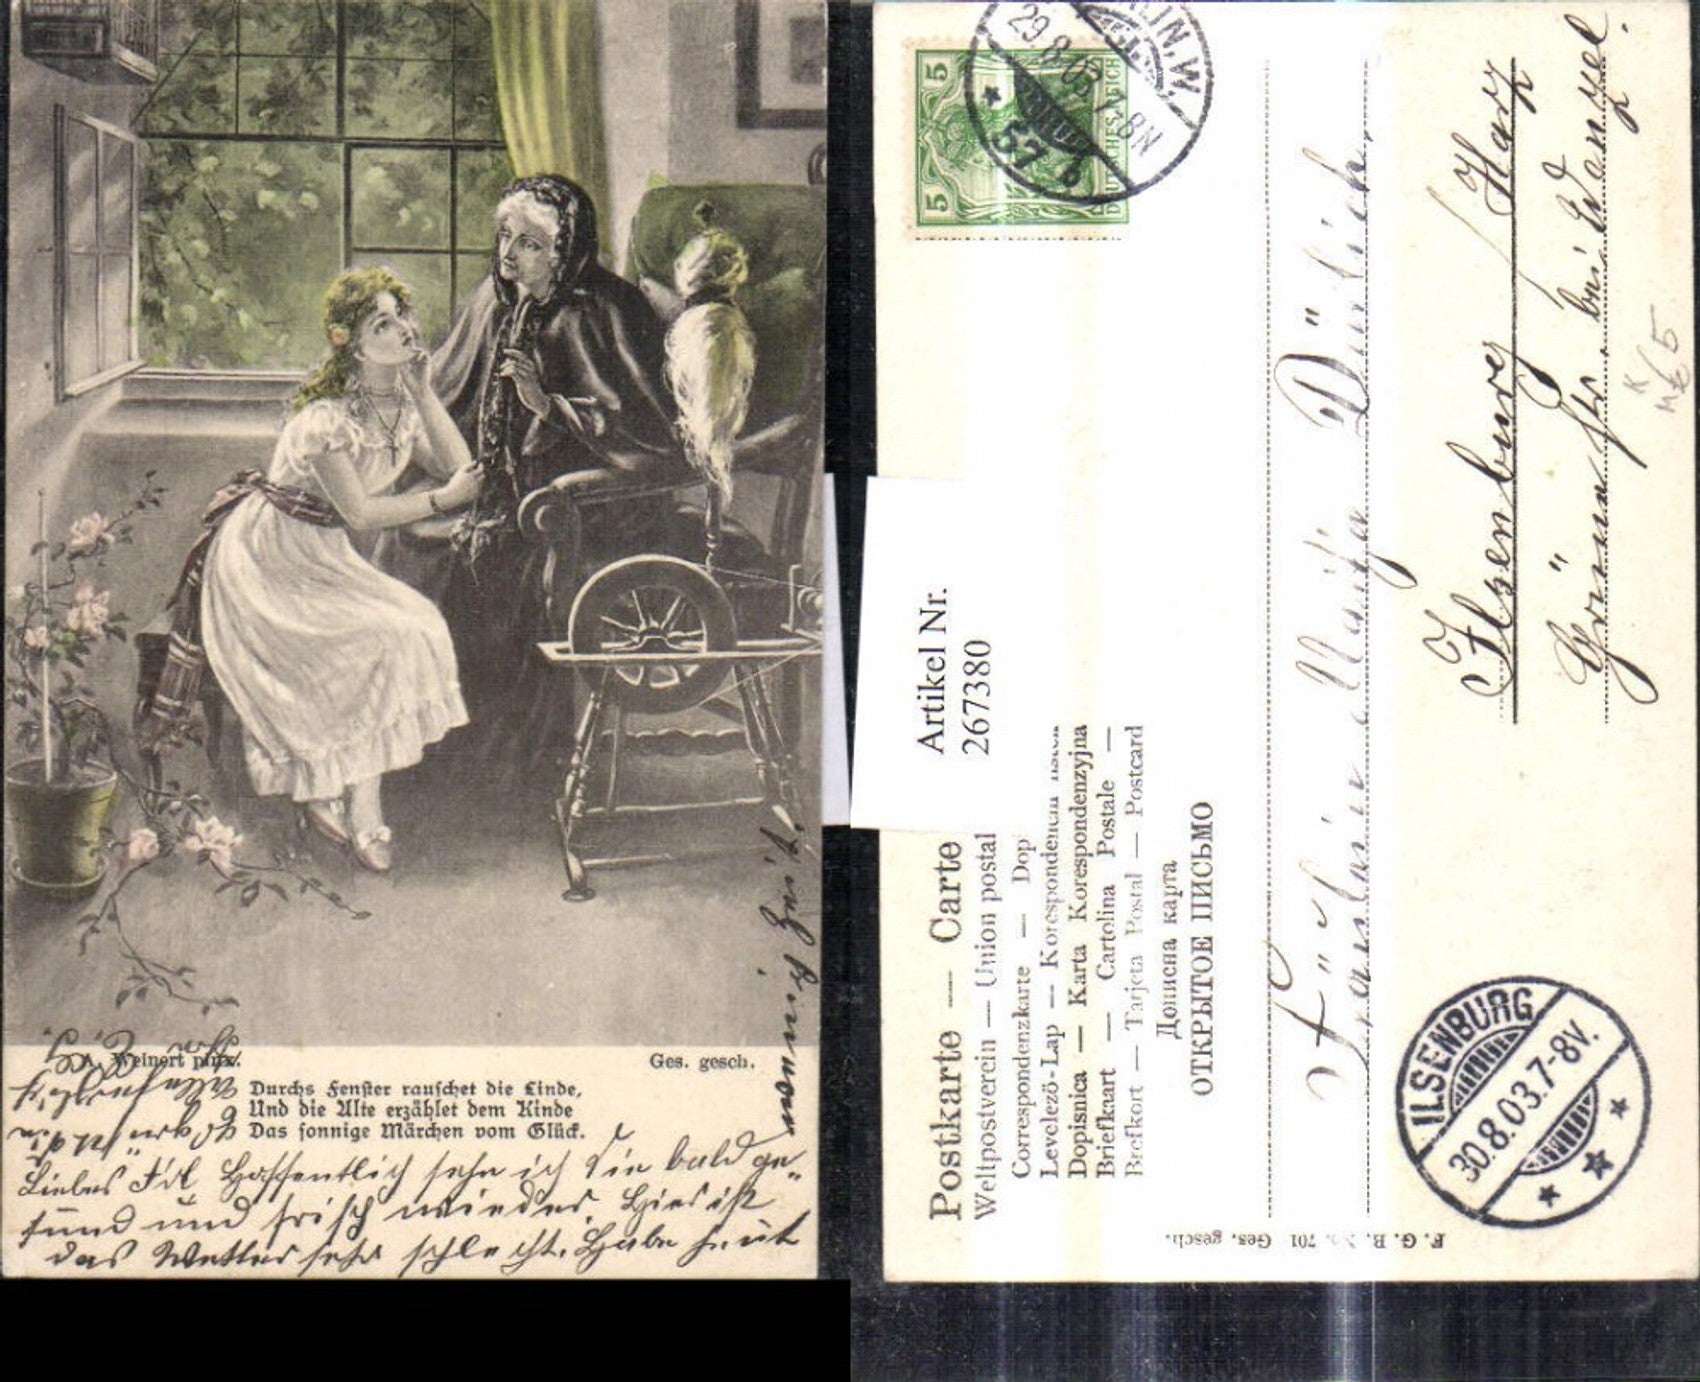 A. Weinert pinx.
Ges. gesch.
Durchs Fenster rauschet die Linde,
Und die Alte erzählet dem Kinde
Das sonnige Märchen vom Glück.
Liebes Frl. Hoffentlich sehe ich Sie bald ge-
sund und frisch wieder. Hier ist
das Wetter sehr schlecht. Habe heut
BERLIN.W.
29.8.03.7-8N
57 b
5
5
DEUTSCHES REICH
Artikel Nr.
267380
Postkarte — Carte
Weltpostverein — Union postal
Correspondenzkarte — Dop
Levelező-Lap — Korespondencni
Dopisnica — Karta Korespondenzyjna
Briefkaart — Cartolina Postale —
Brefkort — Tarjeta Postal — Postcard
Дописна карта
ОТКРЫТОЕ ПИСЬМО
Fräulein Dürlich,
Ilsenburg / Harz
Grünestr. bei Wenzel.
ILSENBURG
30.8.03.7-8V.
F. G. B. No. 701 Ges. gesch.